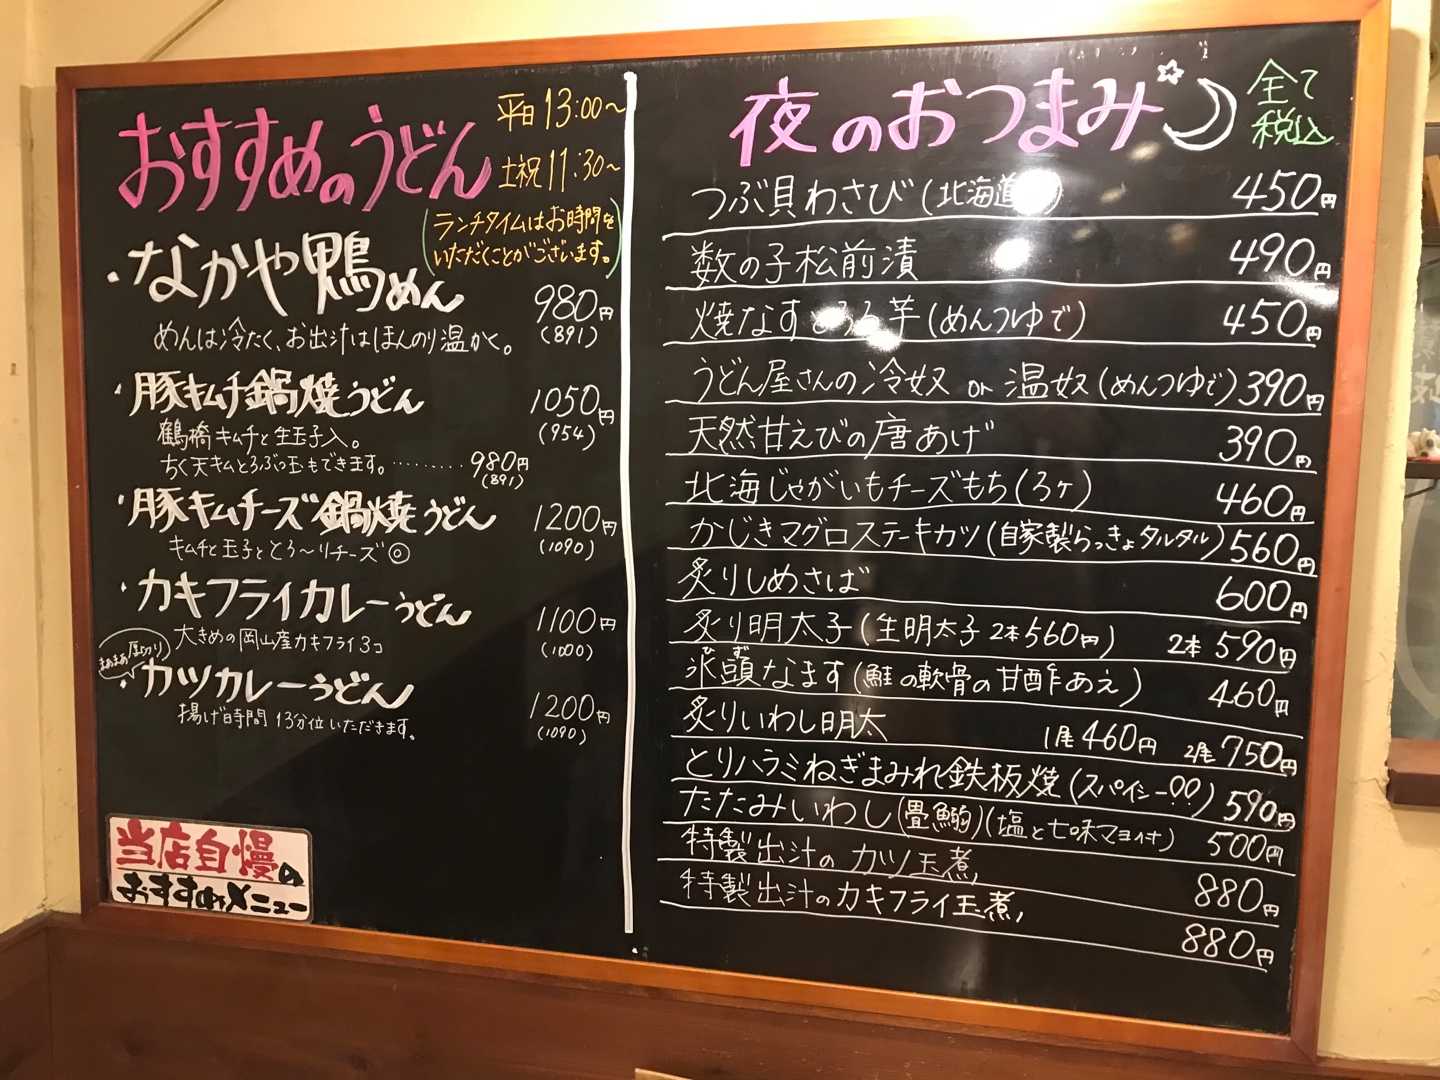 おすすめのうどん
平日13:00〜
土祝11:30〜
(ランチタイムはお時間を
いただくことがございます。)
・なかや鴨めん 980円
(891)
めんは冷たく、お出汁はほんのり温かく。
・豚キムチ鍋焼うどん 1050円
(954)
鶴橋キムチと生玉子入。
ちく天キムとろぶっ玉もできます。……… 980円
(891)
・豚キムチーズ鍋焼うどん 1200円
(1090)
キムチと玉子ととろ〜りチーズ◎
・カキフライカレーうどん 1100円
(1000)
大きめの岡山産カキフライ3コ
まぁまぁ厚切り
・カツカレーうどん 1200円
(1090)
揚げ時間13分位いただきます。
当店自慢の
おすすめメニュー
夜のおつまみ
全て
税込
つぶ貝わさび(北海道) 450円
数の子松前漬 490円
焼なすとろろ芋(めんつゆで) 450円
うどん屋さんの冷奴 or 温奴(めんつゆで) 390円
天然甘えびの唐あげ 390円
北海じゃがいもチーズもち(3ヶ) 460円
かじきマグロステーキカツ(自家製らっきょタルタル) 560円
炙りしめさば 600円
炙り明太子(生明太子2本560円) 2本 590円
ひず
氷頭なます(鮭の軟骨の甘酢あえ) 460円
炙りいわし明太 1尾460円 2尾750円
とりハラミねぎまみれ鉄板焼(スパイシー!!) 590円
たたみいわし(畳鰯)(塩と七味マヨ付) 500円
特製出汁のカツ玉煮 880円
特製出汁のカキフライ玉煮 880円